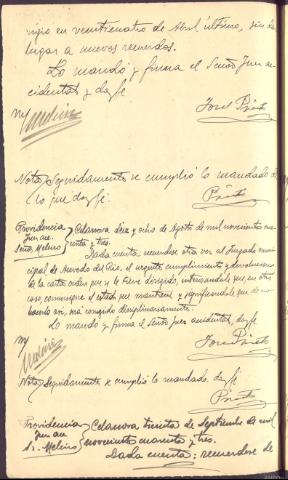 vigio en veinticuatro de Abril último, sin da
lugar a nuevos recuerdos.
Lo mandó y firma el Señor Juez ac
cidental, doy fé
M/ Meleiro
José Prieto
Nota } Seguidamente se cumplió lo mandado de
lo que doy fé.
Prieto
Providencia } Celanova diez y ocho de Agosto de mil novecientos cua
Juez ac. renta y tres.
Señor Meleiro
Dada cuenta, recuérdese otra vez al Juzgado muni
cipal de Acevedo del Río, el urgente cumplimiento y devolución
de la carta orden que se le tiene dirigido, interesándole que, en otro
caso, comunique el estado que mantiene, y significándole que de no
hacerlo así, será corregido disciplinariamente.
Lo mandó y firma el Señor Juez accidental, doy fé
M/ Meleiro
José Prieto
Nota } Seguidamente se cumplió lo mandado. doy fé
Prieto
Providencia } Celanova treinta de Septiembre de mil
Juez ac. novecientos cuarenta y tres.
Sr. Meleiro
Dada cuenta; recuérdese de